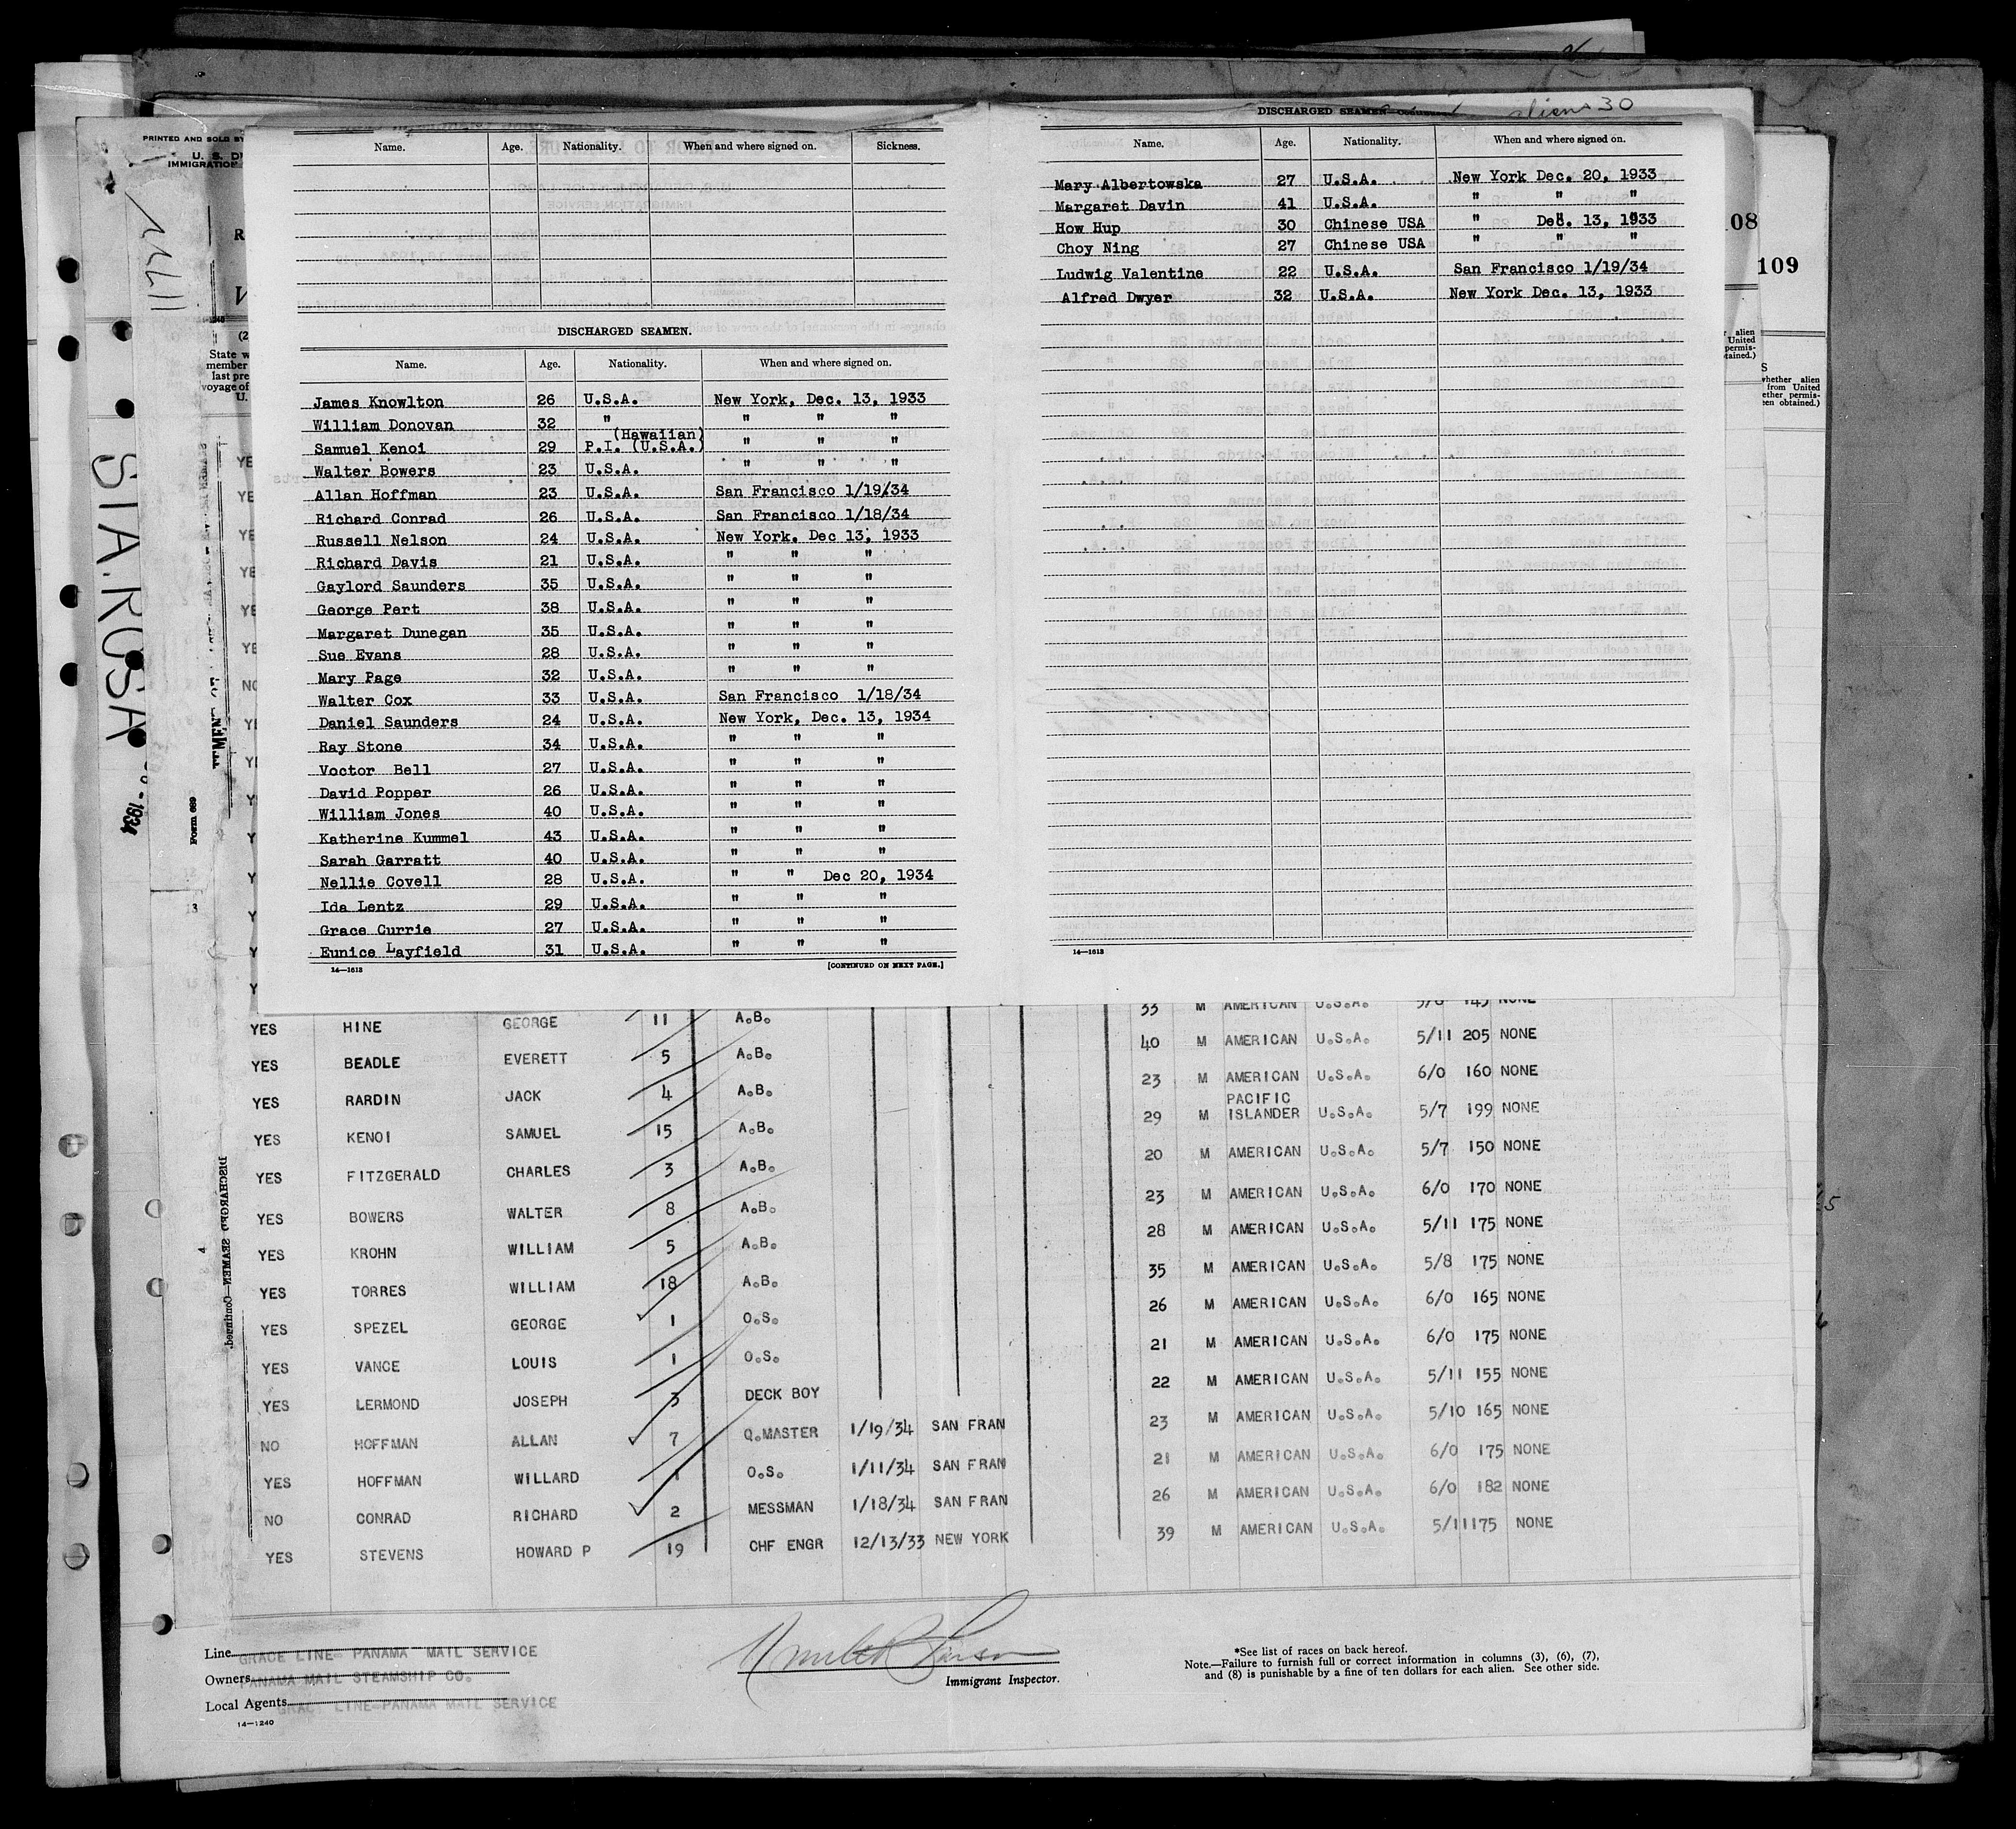 aliens 30
PRINTED AND SOLD BY
IMMIGRATION
STA. ROSA
1934
Form 689
108
109
Name. Age. Nationality. When and where signed on. Sickness.
DISCHARGED SEAMEN.
Name. Age. Nationality. When and where signed on.
James Knowlton 26 U.S.A. New York, Dec. 13, 1933
William Donovan 32 " " " "
(Hawaiian)
Samuel Kenoi 29 P.I. (U.S.A.) " " "
Walter Bowers 23 U.S.A. " " "
Allan Hoffman 23 U.S.A. San Francisco 1/19/34
Richard Conrad 26 U.S.A. San Francisco 1/18/34
Russell Nelson 24 U.S.A. New York. Dec 13, 1933
Richard Davis 21 U.S.A. " " "
Gaylord Saunders 35 U.S.A. " " "
George Pert 38 U.S.A. " " "
Margaret Dunegan 35 U.S.A. " " "
Sue Evans 28 U.S.A. " " "
Mary Page 32 U.S.A. " " "
Walter Cox 33 U.S.A. San Francisco 1/18/34
Daniel Saunders 24 U.S.A. New York, Dec. 13, 1934
Ray Stone 34 U.S.A. " " "
Voctor Bell 27 U.S.A. " " "
David Popper 26 U.S.A. " " "
William Jones 40 U.S.A. " " "
Katherine Kummel 43 U.S.A. " " "
Sarah Garratt 40 U.S.A. " " "
Nellie Covell 28 U.S.A. " " Dec 20, 1934
Ida Lentz 29 U.S.A. " " "
Grace Currie 27 U.S.A. " " "
Eunice Layfield 31 U.S.A. " " "
14—1613 [CONTINUED ON NEXT PAGE.]
DISCHARGED SEAMEN
Name. Age. Nationality. When and where signed on.
Mary Albertowska 27 U.S.A. New York Dec. 20, 1933
Margaret Davin 41 U.S.A. " " "
How Hup 30 Chinese USA " Dec. 13, 1933
Choy Ning 27 Chinese USA " " "
Ludwig Valentine 22 U.S.A. San Francisco 1/19/34
Alfred Dwyer 32 U.S.A. New York Dec. 13, 1933
14—1613
33 M AMERICAN U.S.A. 5/8 145 NONE
YES HINE GEORGE 11 A.B. 40 M AMERICAN U.S.A. 5/11 205 NONE
YES BEADLE EVERETT 5 A.B. 23 M AMERICAN U.S.A. 6/0 160 NONE
YES RARDIN JACK 4 A.B. 29 M PACIFIC ISLANDER U.S.A. 5/7 199 NONE
YES KENOI SAMUEL 15 A.B. 20 M AMERICAN U.S.A. 5/7 150 NONE
YES FITZGERALD CHARLES 3 A.B. 23 M AMERICAN U.S.A. 6/0 170 NONE
YES BOWERS WALTER 8 A.B. 28 M AMERICAN U.S.A. 5/11 175 NONE
YES KROHN WILLIAM 5 A.B. 35 M AMERICAN U.S.A. 5/8 175 NONE
YES TORRES WILLIAM 18 A.B. 26 M AMERICAN U.S.A. 6/0 165 NONE
YES SPEZEL GEORGE 1 O.S. 21 M AMERICAN U.S.A. 6/0 175 NONE
YES VANCE LOUIS 1 O.S. 22 M AMERICAN U.S.A. 5/11 155 NONE
YES LERMOND JOSEPH 3 DECK BOY 23 M AMERICAN U.S.A. 5/10 165 NONE
NO HOFFMAN ALLAN 7 Q.MASTER 1/19/34 SAN FRAN 21 M AMERICAN U.S.A. 6/0 175 NONE
YES HOFFMAN WILLARD 1 O.S. 1/11/34 SAN FRAN 26 M AMERICAN U.S.A. 6/0 182 NONE
NO CONRAD RICHARD 2 MESSMAN 1/18/34 SAN FRAN 39 M AMERICAN U.S.A. 5/11 175 NONE
YES STEVENS HOWARD P 19 CHF ENGR 12/13/33 NEW YORK
Line GRACE LINE- PANAMA MAIL SERVICE
Owners PANAMA MAIL STEAMSHIP CO.
Local Agents GRACE LINE-PANAMA MAIL SERVICE
14—1240
Immigrant Inspector.
*See list of races on back hereof.
Note.—Failure to furnish full or correct information in columns (3), (6), (7),
and (8) is punishable by a fine of ten dollars for each alien. See other side.